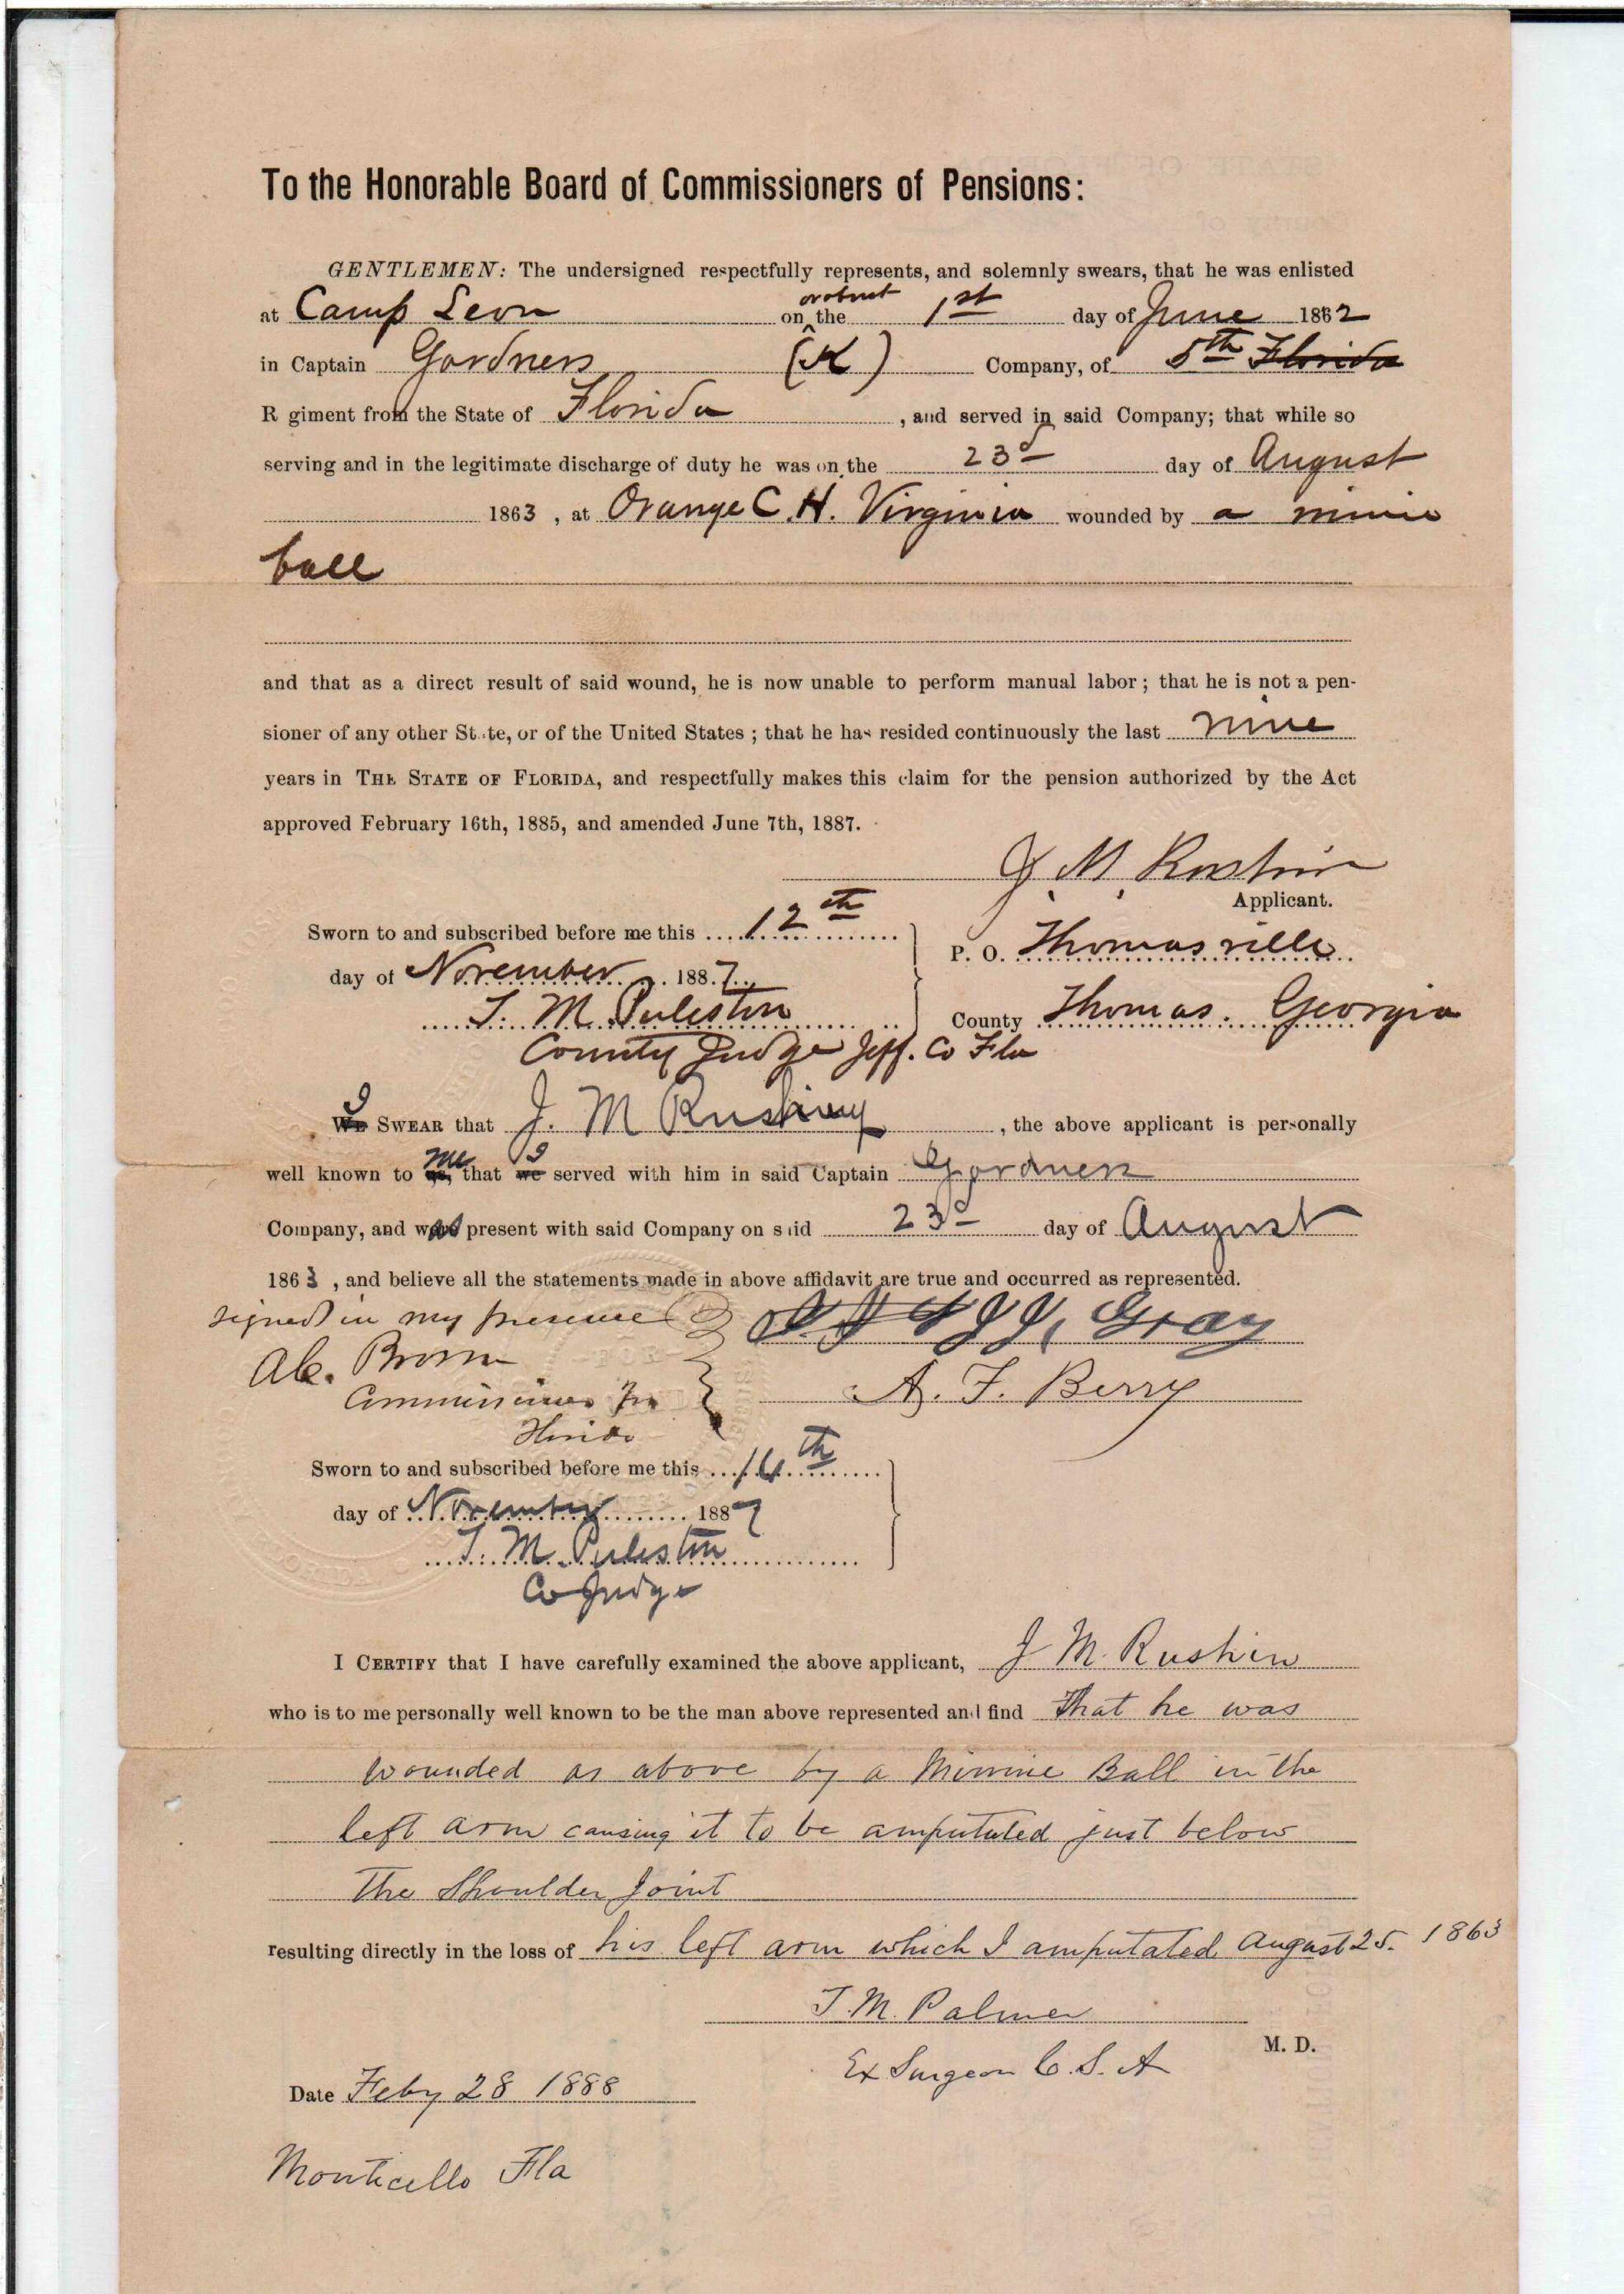 To the Honorable Board of Commissioners of Pensions:
GENTLEMEN: The undersigned respectfully represents, and solemnly swears, that he was enlisted
at Camp Leon on or about the 1st day of June 1862
in Captain Gardners (K) Company, of 5th Florida
R giment from the State of Florida, and served in said Company; that while so
serving and in the legitimate discharge of duty he was on the 23d day of August
1863, at Orange C. H. Virginia wounded by a minie
ball
and that as a direct result of said wound, he is now unable to perform manual labor; that he is not a pen-
sioner of any other St te, or of the United States; that he has resided continuously the last nine
years in THE STATE OF FLORIDA, and respectfully makes this claim for the pension authorized by the Act
approved February 16th, 1885, and amended June 7th, 1887.
J. M. Rushin
Applicant.
Sworn to and subscribed before me this 12th
day of November 1887
T. M. Puleston
County Judge Jeff. Co Fla
P. O. Thomasville
County Thomas. Georgia
We I SWEAR that J. M Rushing, the above applicant is personally
well known to us, me that we I served with him in said Captain Gardners
Company, and was present with said Company on s id 23d day of August
1863, and believe all the statements made in above affidavit are true and occurred as represented.
signed in my presence J J, Gray
Brown A. F. Berry
Commissioner for
Florida
Sworn to and subscribed before me this 14th
day of November 1887
T. M. Puleston
Co Judge
I CERTIFY that I have carefully examined the above applicant, J M. Rushin
who is to me personally well known to be the man above represented and find That he was
wounded as above by a Minnie Ball in the
left arm causing it to be amputated just below
The Shoulder Joint
resulting directly in the loss of his left arm which I amputated August 25. 1863
T. M. Palmer
M. D.
Ex Surgeon C. S. A
Date Feby 28 1888
Monticello Fla